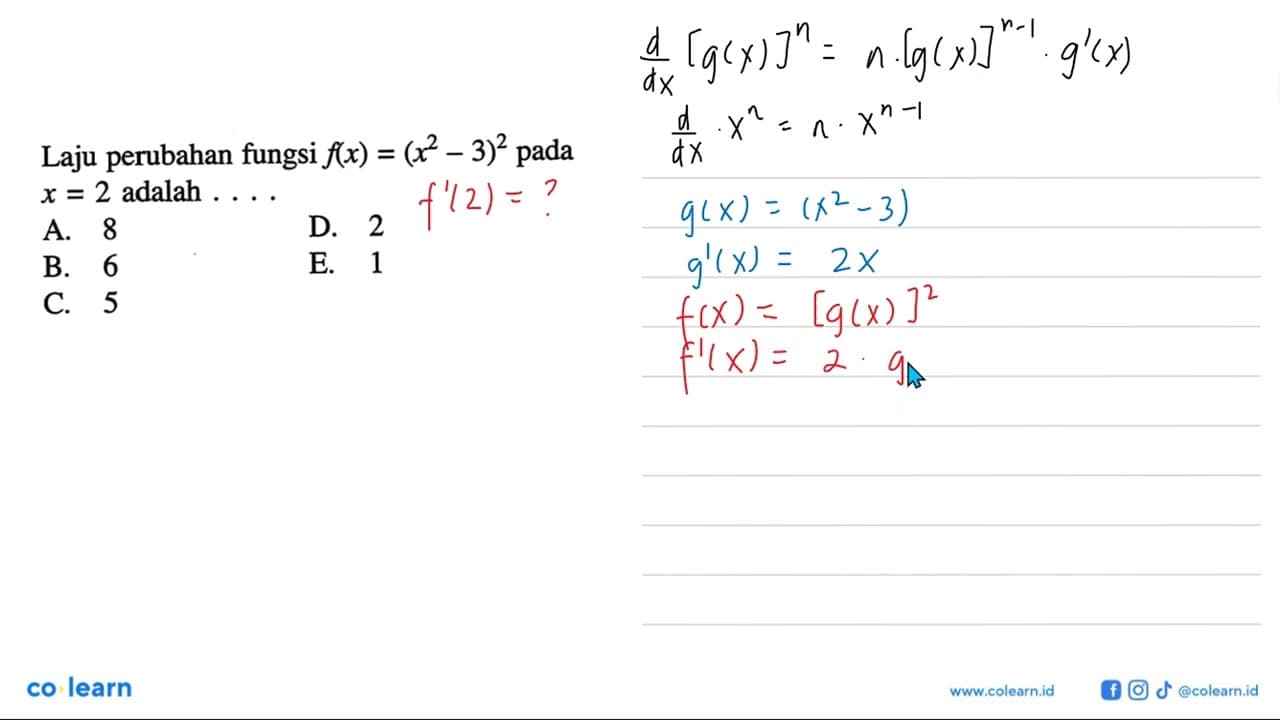 Laju perubahan fungsi f(x) = (x² – 3)² pada
x = 2 adalah . . . .
A. 8
B. 6
C. 5
D. 2
E. 1
f'(2) = ?
d/dx [g(x)]ⁿ = n.[g(x)]ⁿ⁻¹ . g'(x)
d/dx . xⁿ = n . xⁿ⁻¹
g(x) = (x² – 3)
g'(x) = 2x
f(x) = [g(x)]²
f'(x) = 2 . g
co learn
www.colearn.id
@colearn.id